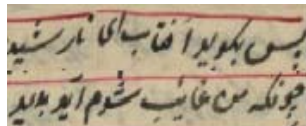 پس بکوید آفتاب ای نارشید
چونکه من غائب شوم آید پدید